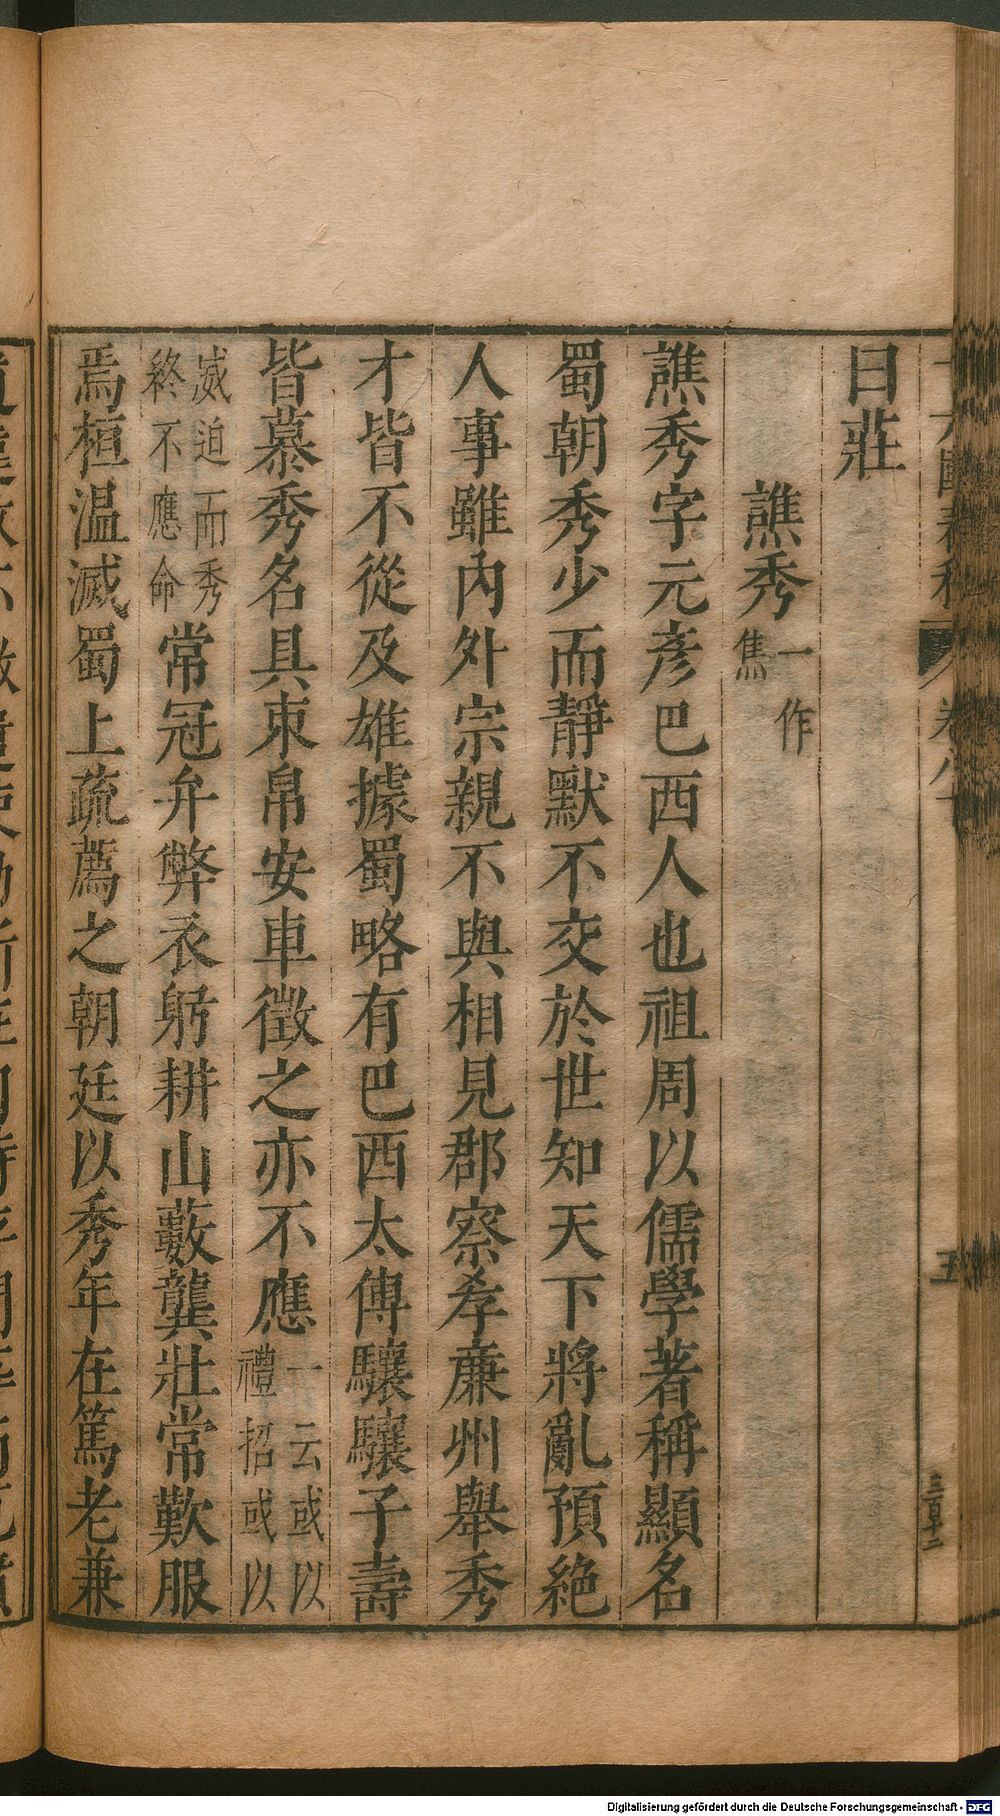 曰莊
譙秀一作焦
譙秀字元彥巴西人也祖周以儒學著稱顯名
蜀朝秀少而靜默不交於世知天下將亂預絕
人事雖內外宗親不與相見郡察孝廉州舉秀
才皆不從及雄據蜀略有巴西太傅驤驤子壽
皆慕秀名具束帛安車徵之亦不應一云或以禮招或以
威迫而秀終不應命常冠弁弊衣躬耕山藪龔壯常歎服
焉桓溫滅蜀上疏薦之朝廷以秀年在篤老兼
五
Digitalisierung gefördert durch die Deutsche Forschungsgemeinschaft - DFG